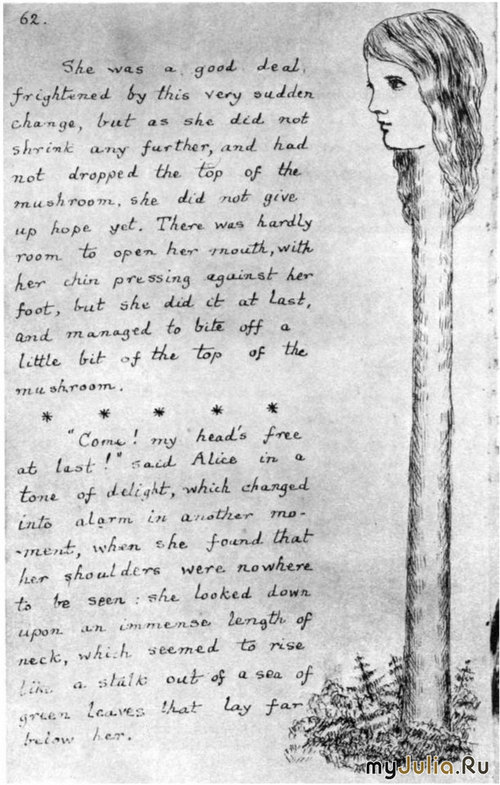 62.
She was a good deal
frightened by this very sudden
change, but as she did not
shrink any further, and had
not dropped the top of the
mushroom, she did not give
up hope yet. There was hardly
room to open her mouth, with
her chin pressing against her
foot, but she did it at last,
and managed to bite off a
little bit of the top of the
mushroom.
* * * * *
"Come! my head's free
at last!" said Alice in a
tone of delight, which changed
into alarm in another mo-
-ment, when she found that
her shoulders were nowhere
to be seen: she looked down
upon an immense length of
neck, which seemed to rise
like a stalk out of a sea of
green leaves that lay far
below her.
myJulia.Ru